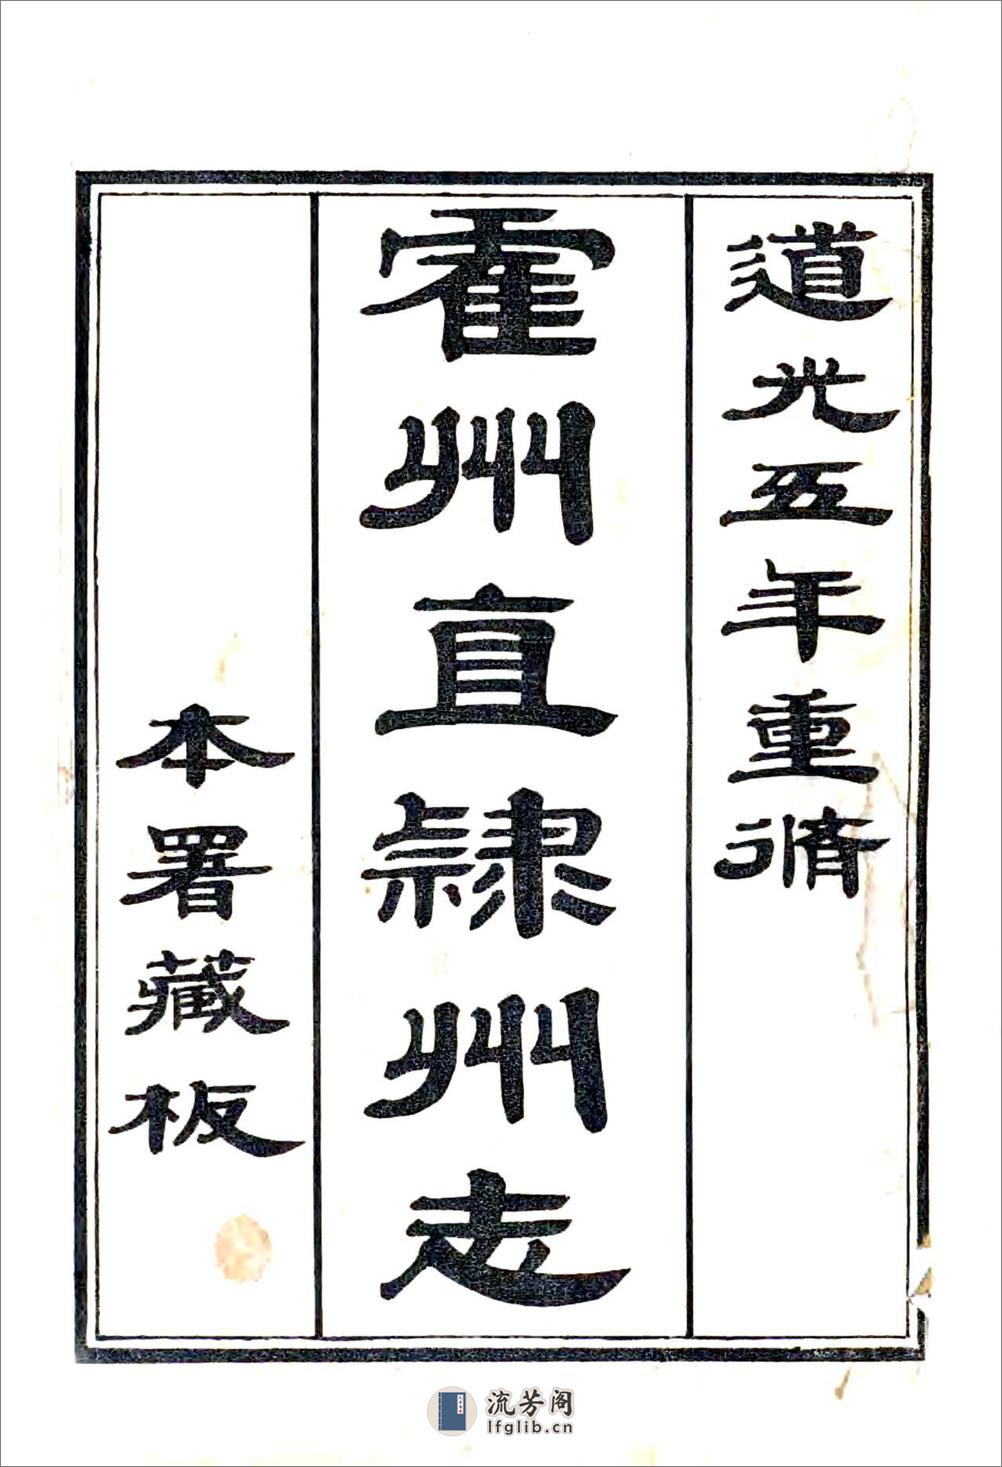 道光五年重脩
霍州直隸州志
本署藏板
流芳阁
lfglib.cn